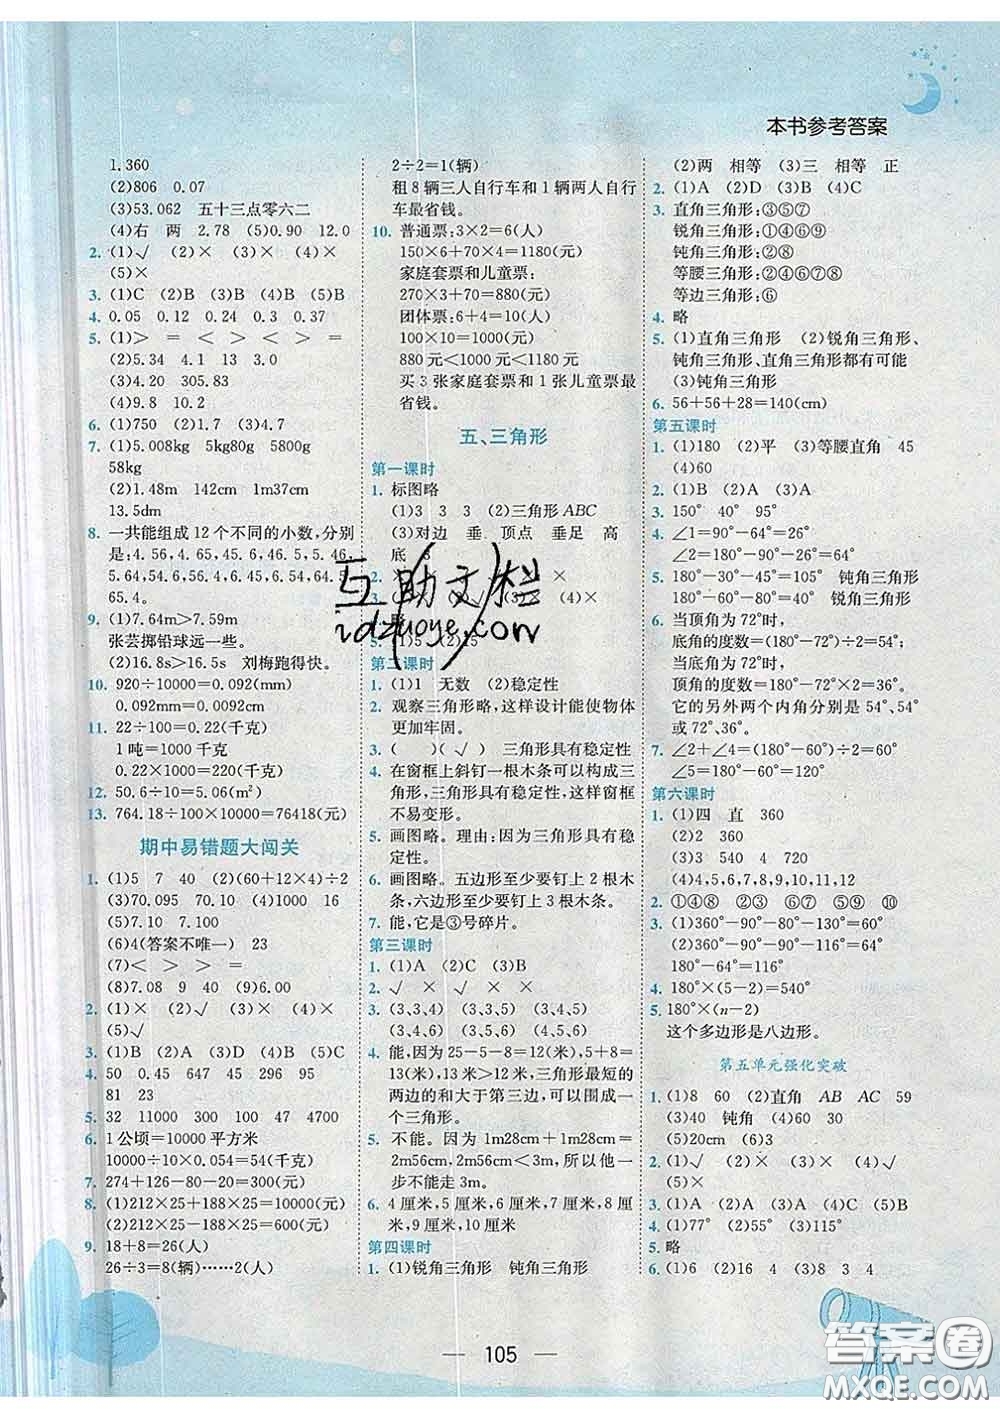 本书参考答案
1.360
(2)806 0.07
(3)53.062 五十三点零六二
(4)右 两 2.78 (5)0.90 12.0
2. (1)√ (2)× (3)× (4)×
(5)×
3. (1)C (2)B (3)B (4)B (5)B
4. 0.05 0.12 0.24 0.3 0.37
5. (1)> = < > < > =
(2)5.34 4.1 13 3.90
(3)4.20 305.83
(4)9.8 10.2
6. (1)750 (2)1.2 (3)4.7
7. (1)5.008kg 5kg80g 5800g
58kg
(2)1.48m 142cm 1m37cm
13.5dm
8. 一共能组成12个不同的小数,分别
是:4.56,4.65,45.6,46.5,5.46,
5.64,54.6,56.4,6.45,6.54,64.5,
65.4。
9. (1)7.64m>7.59m
张芸掷铅球远一些。
(2)16.8s>16.5s 刘梅跑得快。
10. 920÷10000=0.092(mm)
0.092mm=0.0092cm
11. 22÷100=0.22(千克)
1吨=1000千克
0.22×1000=220(千克)
12. 50.6÷10=5.06(m²)
13. 764.18÷100×10000=76418(元)
期中易错题大闯关
1. (1)5 7 40 (2)(60+12×4)÷2
(3)70.095 70.10 (4)1000 16
(5)7.10 7.100
(6)4(答案不唯一) 23
(7)< > > =
(8)7.08 9 40 (9)6.00
2. (1)× (2)√ (3)× (4)×
(5)√
3. (1)B (2)A (3)D (4)B (5)C
4. 50 0.45 145 296 95
81 23
5. 32 11000 300 100 47 4700
6. 1公顷=10000平方米
10000÷10×0.054=54(千克)
7. 274+126-80-20=300
8. (1)212×25+188×25=10000(元)
(2)212×25-188×25=600(元)
9. 18+8=26(人)
26÷3=8(辆)……2(人)
2÷2=1(辆)
租8辆三人自行车和1辆两人自行
车最省钱。
10. 普通票:3×2=6(人)
150×6+70×4=1180(元)
家庭套票和儿童票:
270×3+70=880(元)
团体票:6+4=10(人)
100×10=1000(元)
880元<1000元<1180元
买3张家庭套票和1张儿童票最
省钱。
五、三角形
第一课时
1. 标图略
(1)3 3 3 (2)三角形ABC
(3)对边 垂 顶点 垂足 高
底 3
2. × ×
3. (3)× (4)×
5. (1)5 (2)15
第二课时
1. (1)1 无数 (2)稳定性
2. 观察三角形略,这样设计能使物体
更加牢固。
3. ( ) (√) 三角形具有稳定性
4. 在窗框上斜钉一根木条可以构成三
角形,三角形具有稳定性,这样窗框
不易变形。
5. 画图略。理由:因为三角形具有稳
定性。
6. 画图略。五边形至少要钉上2根木
条,六边形至少要钉上3根木条。
7. 能,它是③号碎片。
第三课时
1. (1)A (2)C (3)B
2. √ × √ ×
3. (3,3,4) (3,3,5) (3,4,5)
(3,4,6) (3,5,6) (4,5,6)
4. 能,因为25-5-8=12(米),5+8=
13(米),13米>12米,三角形最短的
两边的和大于第三边,可以围成一
个三角形。
5. 不能。因为1m28cm+1m28cm=
2m56cm,2m56cm<3m,所以他一步
不能走3m。
6. 4厘米,5厘米,6厘米,7厘米,8厘
米,9厘米,10厘米
第四课时
1. (1)锐角三角形 钝角三角形
(2)两 相等 (3)三 相等 正
2. (1)A (2)D (3)B (4)C
3. 直角三角形:③⑤⑦
锐角三角形:①④⑥⑨
钝角三角形:②⑧
等腰三角形:②④⑥⑦⑧
等边三角形:⑥
4. 略
5. (1)直角三角形 (2)锐角三角形、
钝角三角形、直角三角形都有可能
(3)钝角三角形
6. 56+56+28=140(cm)
第五课时
1. (1)180 (2)平 (3)等腰直角 45
(4)60
2. (1)B (2)A (3)A
3. 150° 40° 95°
4. ∠1=90°-64°=26°
∠2=180°-90°-26°=64°
5. 180°-30°-45°=105° 钝角三角形
180°-60°-60°=60° 锐角三角形
6. 当顶角为72°时,
底角的度数=(180°-72°)÷2=54°;
当底角为72°时,
顶角的度数=180°-72°×2=36°。
它的另外两个内角分别是54°、54°
或72°、36°。
7. ∠2+∠4=(180°-60°)÷2=60°
∠5=180°-60°-60°=60°
第六课时
1. (1)四 直 360
(2)2 360
(3)4 4 720
(4)4,12,5,900,6,1080
2. ①④⑧ ②③ ⑥⑦ ⑤⑨ ⑩
3. (1)360°-90°-80°-130°=60°
(2)360°-90°-90°-116°=64°
180°-64°=116°
4. 180°×(5-2)=540°
5. 180°×(n-2)
这个多边形是八边形。
第五单元强化突破
1. (1)8 60 (2)直角 AB AC 59
(3)40 钝角 (4)60 30
(5)20cm (6)3
2. (1)√ (2)× (3)× (4)√
(5)×
3. (1)A (2)A (3)C (4)C (5)B
4. (1)77° (2)55° (3)115°
5. 略
6. (1)6 (2)16 4 (3)8 3 4
互助文档
idzuoye.com
105
答案圈
MXQE.COM